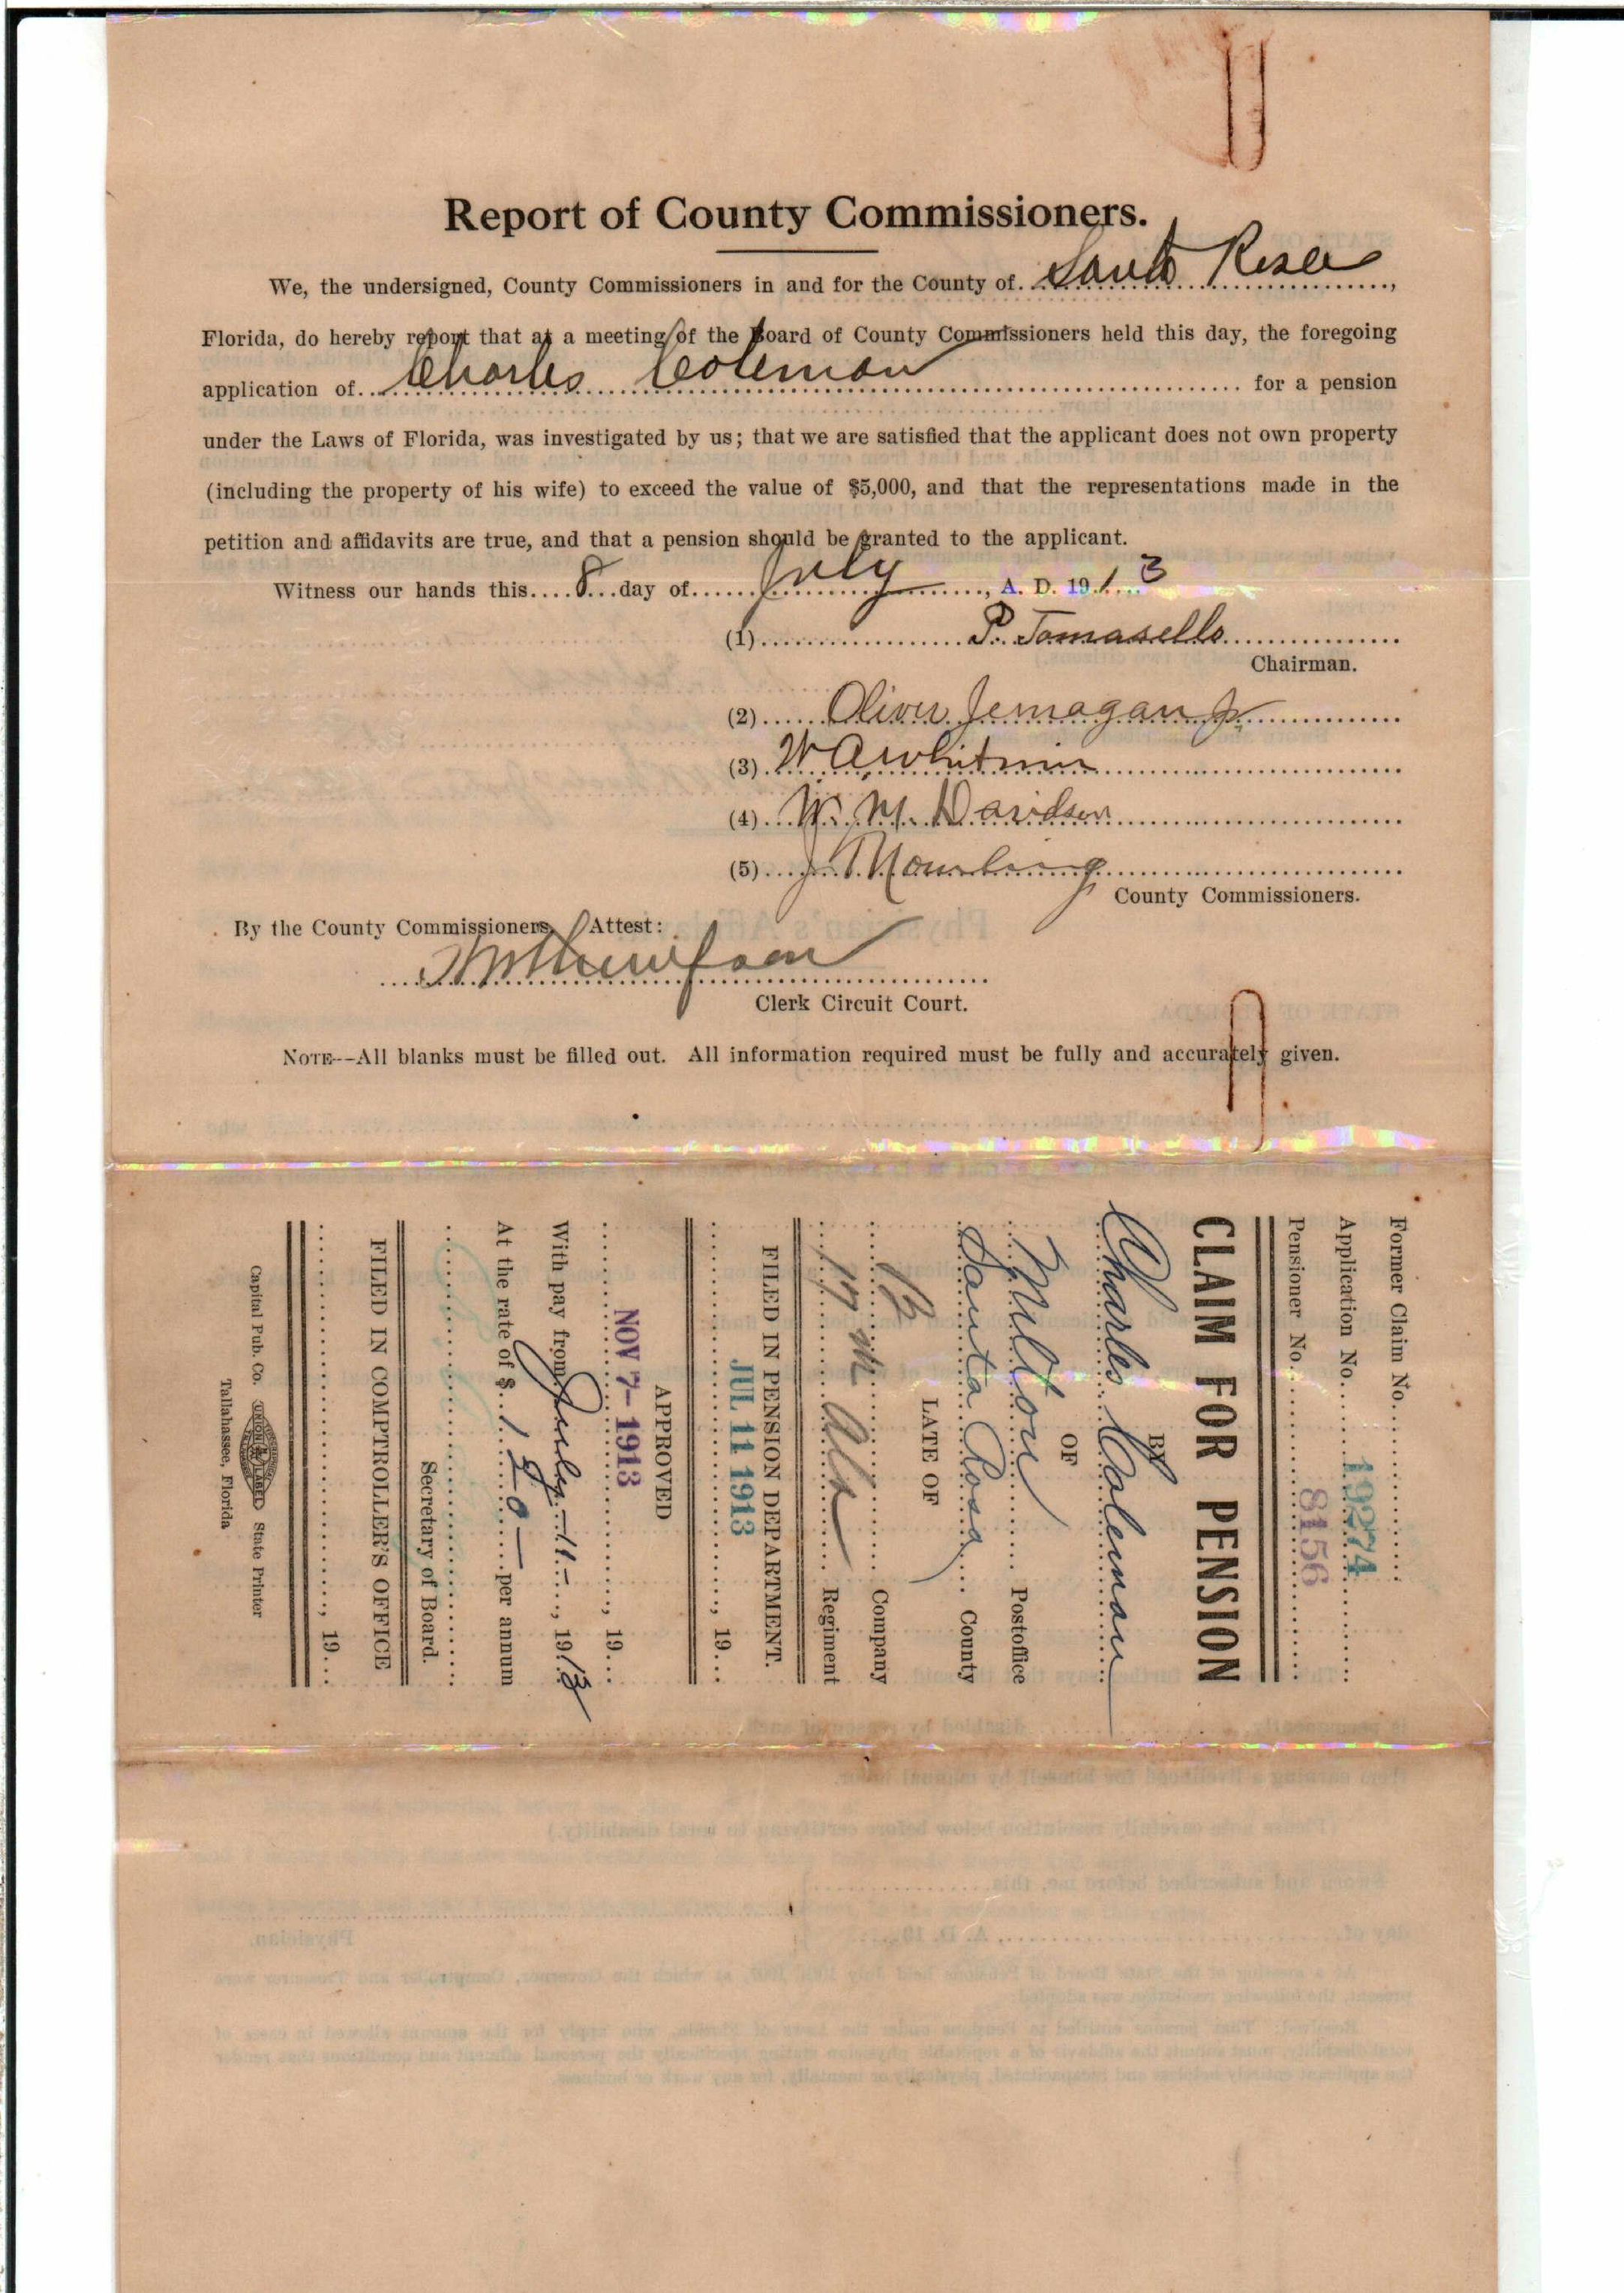 Report of County Commissioners.
We, the undersigned, County Commissioners in and for the County of Santa Rosa,
Florida, do hereby report that at a meeting of the Board of County Commissioners held this day, the foregoing
application of Charles Coleman for a pension
under the Laws of Florida, was investigated by us; that we are satisfied that the applicant does not own property
(including the property of his wife) to exceed the value of $5,000, and that the representations made in the
petition and affidavits are true, and that a pension should be granted to the applicant.
Witness our hands this 8 day of July, A. D. 1913
(1) P. Tomasello
Chairman.
(2) Oliver Jernagan Jr
(3) W A Whitmire
(4) W. M. Davidson
(5) J
County Commissioners.
By the County Commissioners, Attest:
Clerk Circuit Court.
NOTE--All blanks must be filled out. All information required must be fully and accurately given.
Former Claim No.
Application No. 19274
Pensioner No. 8156
CLAIM FOR PENSION
BY
Charles Coleman
OF
Milton Postoffice
Santa Rosa County
LATE OF
B Company
17 Ala Regiment
FILED IN PENSION DEPARTMENT.
JUL 11 1913, 19
APPROVED
NOV 7- 1913, 19
With pay from July 11-, 1913
At the rate of $ 150- per annum
Secretary of Board.
FILED IN COMPTROLLER'S OFFICE
, 19
Capital Pub. Co. UNION LABEL State Printer
Tallahassee, Florida